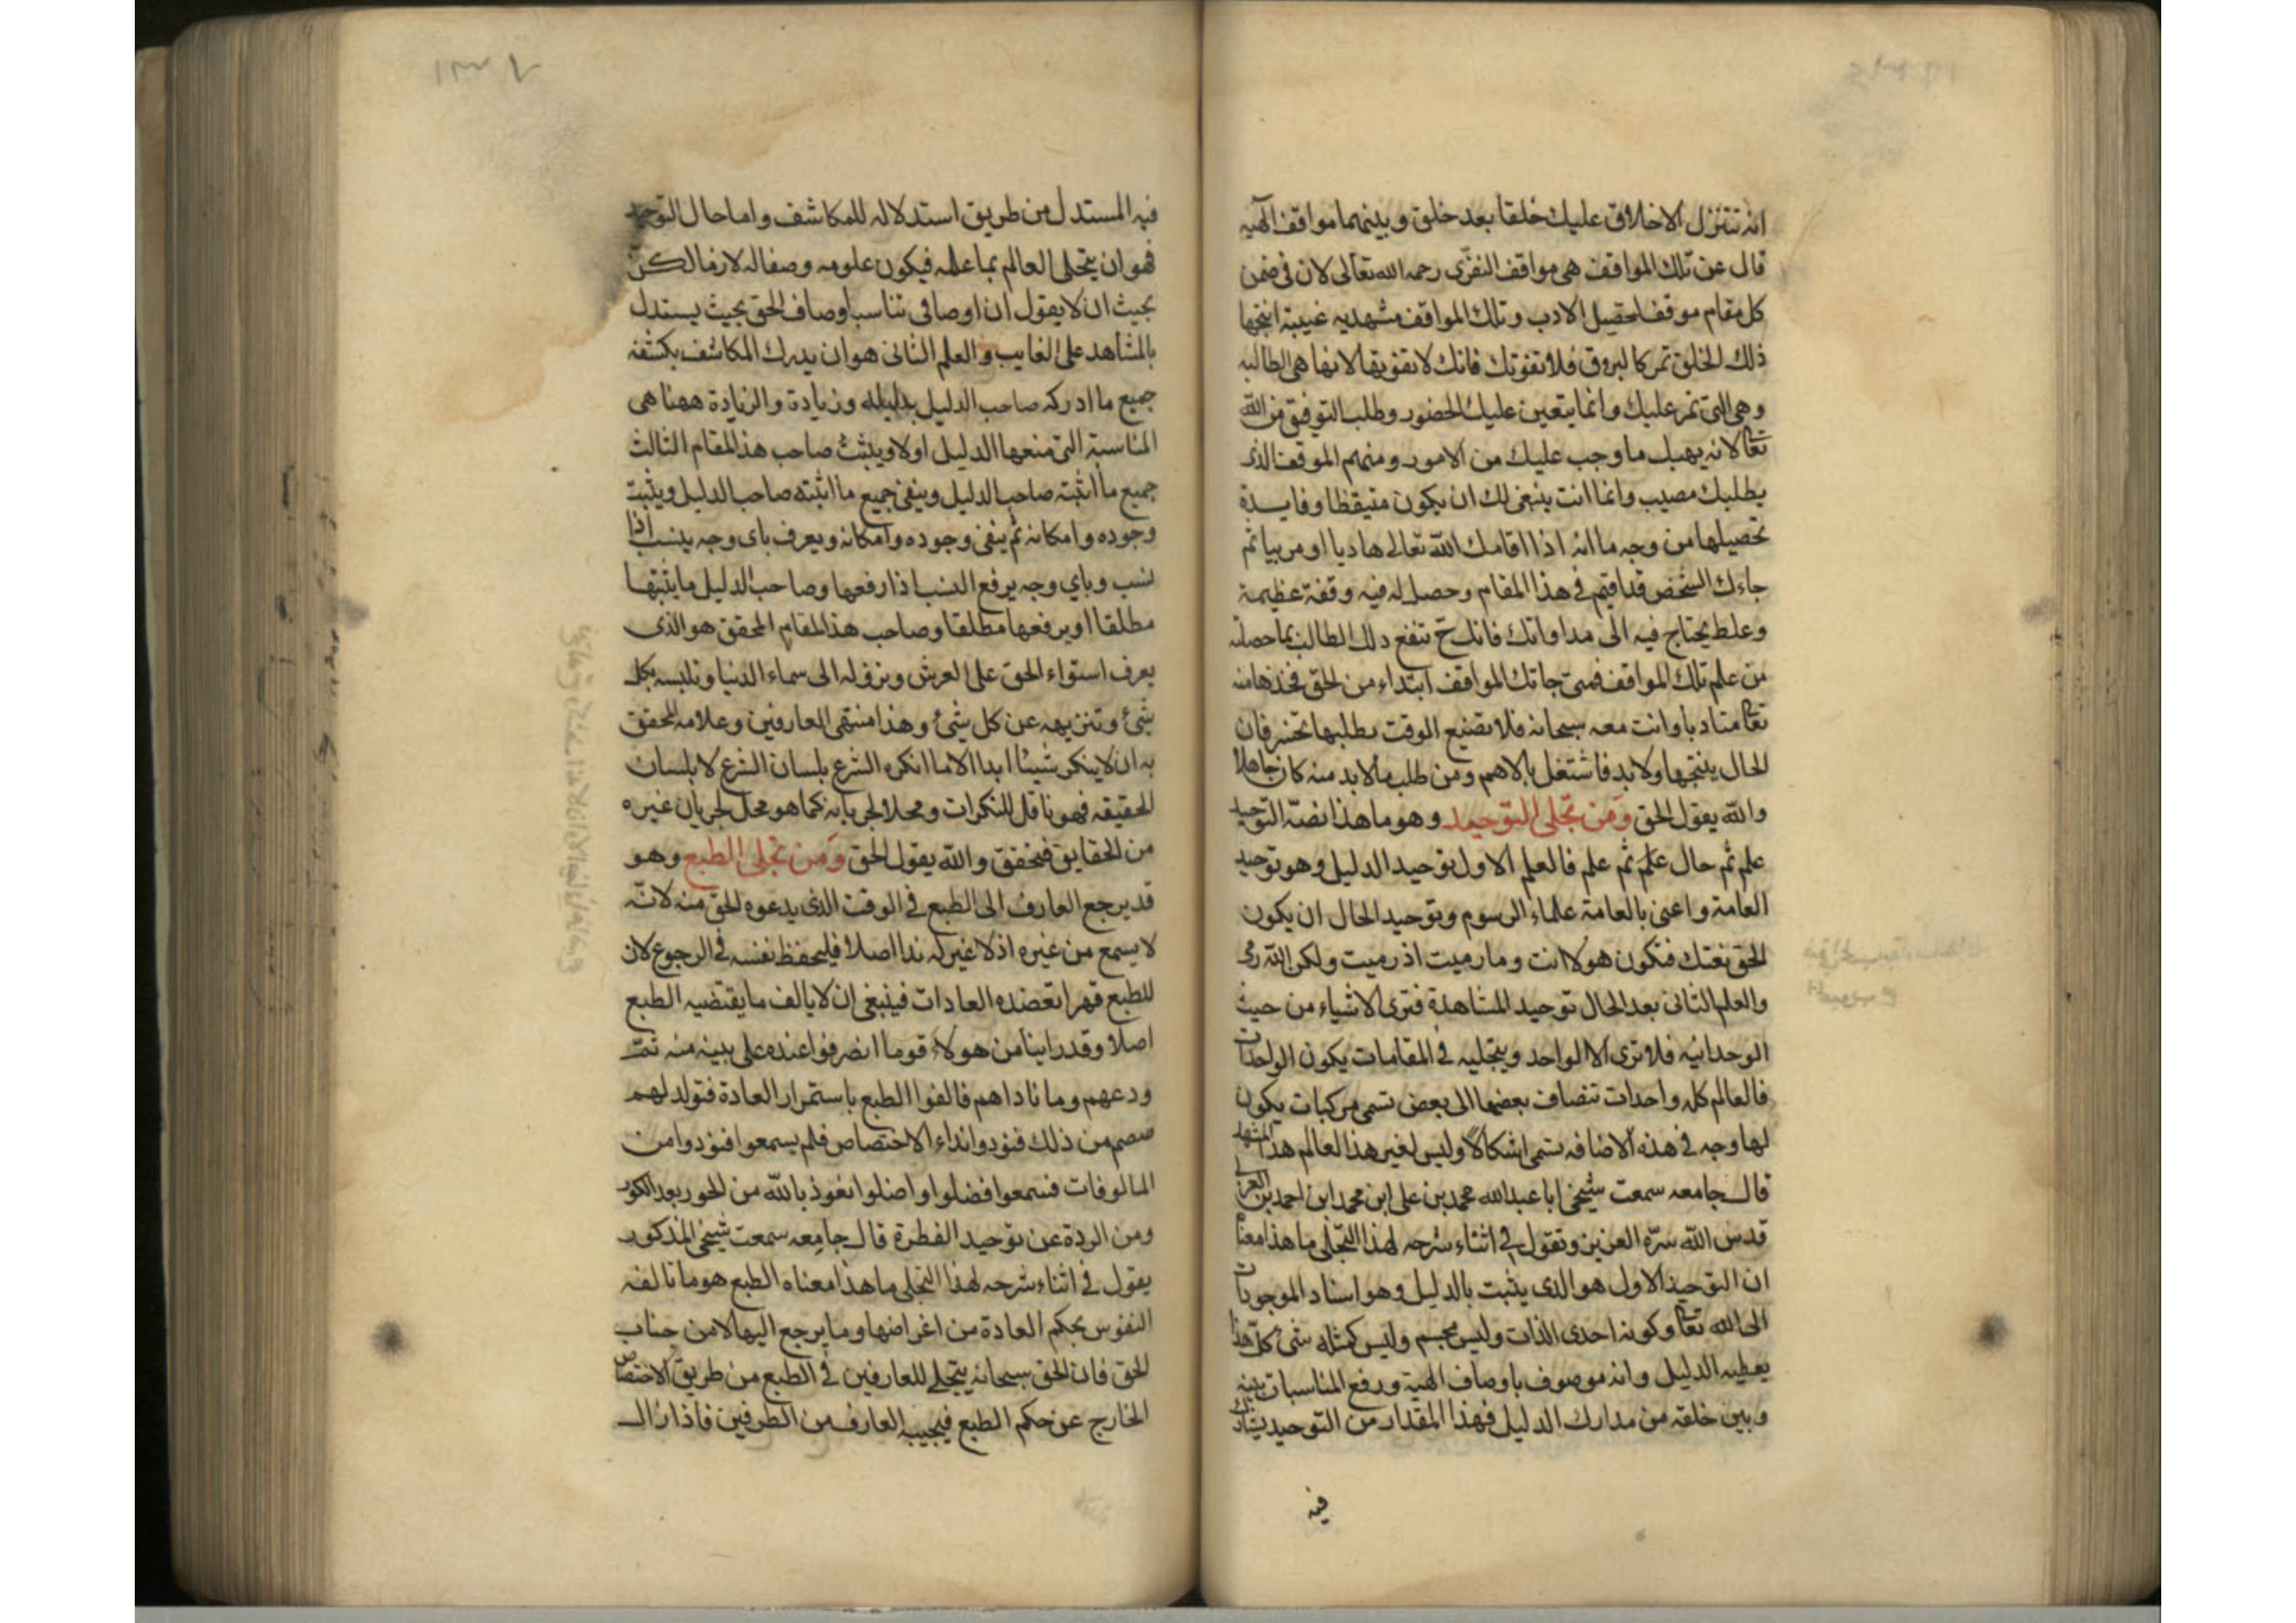 انه تتنزل الاخلاق عليك خلقا بعد خلق وبينهما مواقف الهيه
قال عن تلك المواقف هى مواقف النفرى رحمه الله تعالى لان فى ضمن
كل مقام موقف لتحصيل الادب وتلك المواقف مشهديه غيبية انتجها
ذلك الخلق تمر كالبروق فلا تفوتك فانك لا تفوتها لانها هى الطالبه
وهى التى تمر عليك وانما يتعين عليك الحضور وطلب التوفيق من الله
تعا لانه يهبك ما وجب عليك من الامور ومنهم الموقف الذى
يطلبك مصيب وانما انت ينبغى لك ان يكون متيقظا وفايدة
تحصيلها من وجه ما انه اذا اقامك الله تعالى هاديا او مربيا ثم
جاءك الشخص قد اقيم فى هذا المقام وحصل له فيه وقفة عظيمة
وغلط يحتاج فيه الى مداواتك فانك ح تنفع ذلك الطالب بما حصلته
من علم تلك المواقف فمتى جاتك المواقف ابتداء من الحق فخذها منه
تعا متادبا وانت معه سبحانه فلا تضيع الوقت بطلبها فان
الحال ينتجها ولابد فاشتغل بالاهم ومن طلب ما لابد منه كان جاهلا
والله يقول الحق ومن تجلى التوحيد وهو ما هذا نصه التوحيد
علم ثم حال علم ثم علم فالعلم الاول توحيد الدليل وهو توحيد
العامة واعنى بالعامة علماء الرسوم وتوحيد الحال ان يكون
الحق نعتك فتكون هو لا انت وما رميت اذ رميت ولكن الله رمى
والعلم الثانى بعد الحال توحيد المشاهدة فترى الاشياء من حيث
الوحدانيه فلا ترى الا الواحد وبتجليه فى المقامات يكون الواحدات
فالعالم كله واحدات تنضاف بعضها الى بعض تسمى مركبات يكون
لها وجه فى هذه الاضافه تسمى اشكالا وليس لغير هذا العالم هذا المشهد
قال جامعه سمعت شيخى ابا عبدالله محمد بن على ابن محمد ابن احمد بن العربى
قدس الله سره العزيز وتقول فى اثناء شرحه لهذا التجلى ما هذا معناه
ان التوحيد الاول هو الذى يثبت بالدليل وهو اسناد الموجودات
الى الله تعا وكونه احدى الذات وليس بجسم وليس كمثله شى كل هذا
يعطيه الدليل وانه موصوف باوصاف الهية ورفع المناسبات بينه
وبين خلقه من مدارك الدليل فهذا المقدار من التوحيد يشارك
فيه
فيه المستدل من طريق استدلاله للمكاشف واما حال التوحيد
فهو ان يتجلى العالم بما علمه فيكون علومه وصفا له لازما لكن
بحيث ان لا يقول ان اوصافى تناسب اوصاف الحق بحيث يستدل
بالمشاهد على الغايب والعلم الثانى هو ان يدرك المكاشف بكشفه
جميع ما ادركه صاحب الدليل بدليله وزيادة والزيادة ههنا هى
المناسبة التى منعها الدليل اولا ويثبت صاحب هذا المقام الثالث
جميع ما اثبته صاحب الدليل وينفى جميع ما اثبته صاحب الدليل ويثبت
وجوده وامكانه ثم ينفى وجوده وامكانه ويعرف باى وجه ينسب اذا
نسب وباي وجه يرفع النسب اذا رفعها وصاحب الدليل ما يثبتها
مطلقا او يرفعها مطلقا وصاحب هذا المقام المحقق هو الذى
يعرف استواء الحق على العرش ونزوله الى سماء الدنيا وتلبسه بكل
شئ وتنزيهه عن كل شئ وهذا منتهى العارفين وعلامه المحقق
به ان لا ينكر شيئا ابدا الا ما انكره الشرع بلسان الشرع لا بلسان
الحقيقه فهو ناقل للنكرات ومحلا لجريانه كما هو محل لجريان غيره
من الحقايق فتحقق والله يقول الحق ومن تجلى الطبع وهو
قد يرجع العارف الى الطبع فى الوقت الذى يدعوه الحق منه لانه
لا يسمع من غيره اذ لا غير له ندا اصلا فليحفظ نفسه فى الرجوع لان
للطبع قهرا تعضده العادات فينبغى ان لا يالف ما يقتضيه الطبع
اصلا وقد راينا من هولاء قوما انصرفوا عنده على بينه منه ثمت
ودعهم وما ناداهم فالفوا الطبع باستمرار العادة فتولد لهم
صمم من ذلك فنودوا نداء الاختصاص فلم يسمعوا فنودوا من
المالوفات فسمعوا فضلوا واضلوا نعوذ بالله من الحور بعد الكور
ومن الردة عن توحيد الفطرة قال جامعه سمعت شيخى المذكور
يقول فى اثناء شرحه لهذا التجلى ما هذا معناه الطبع هو ما تالفه
النفوس بحكم العادة من اغراضها وما يرجع اليها لا من جناب
الحق فان الحق سبحانه يتجلى للعارفين فى الطبع من طريق الاختصاص
الخارج عن حكم الطبع فيجيبه العارف من الطرفين فاذا زال